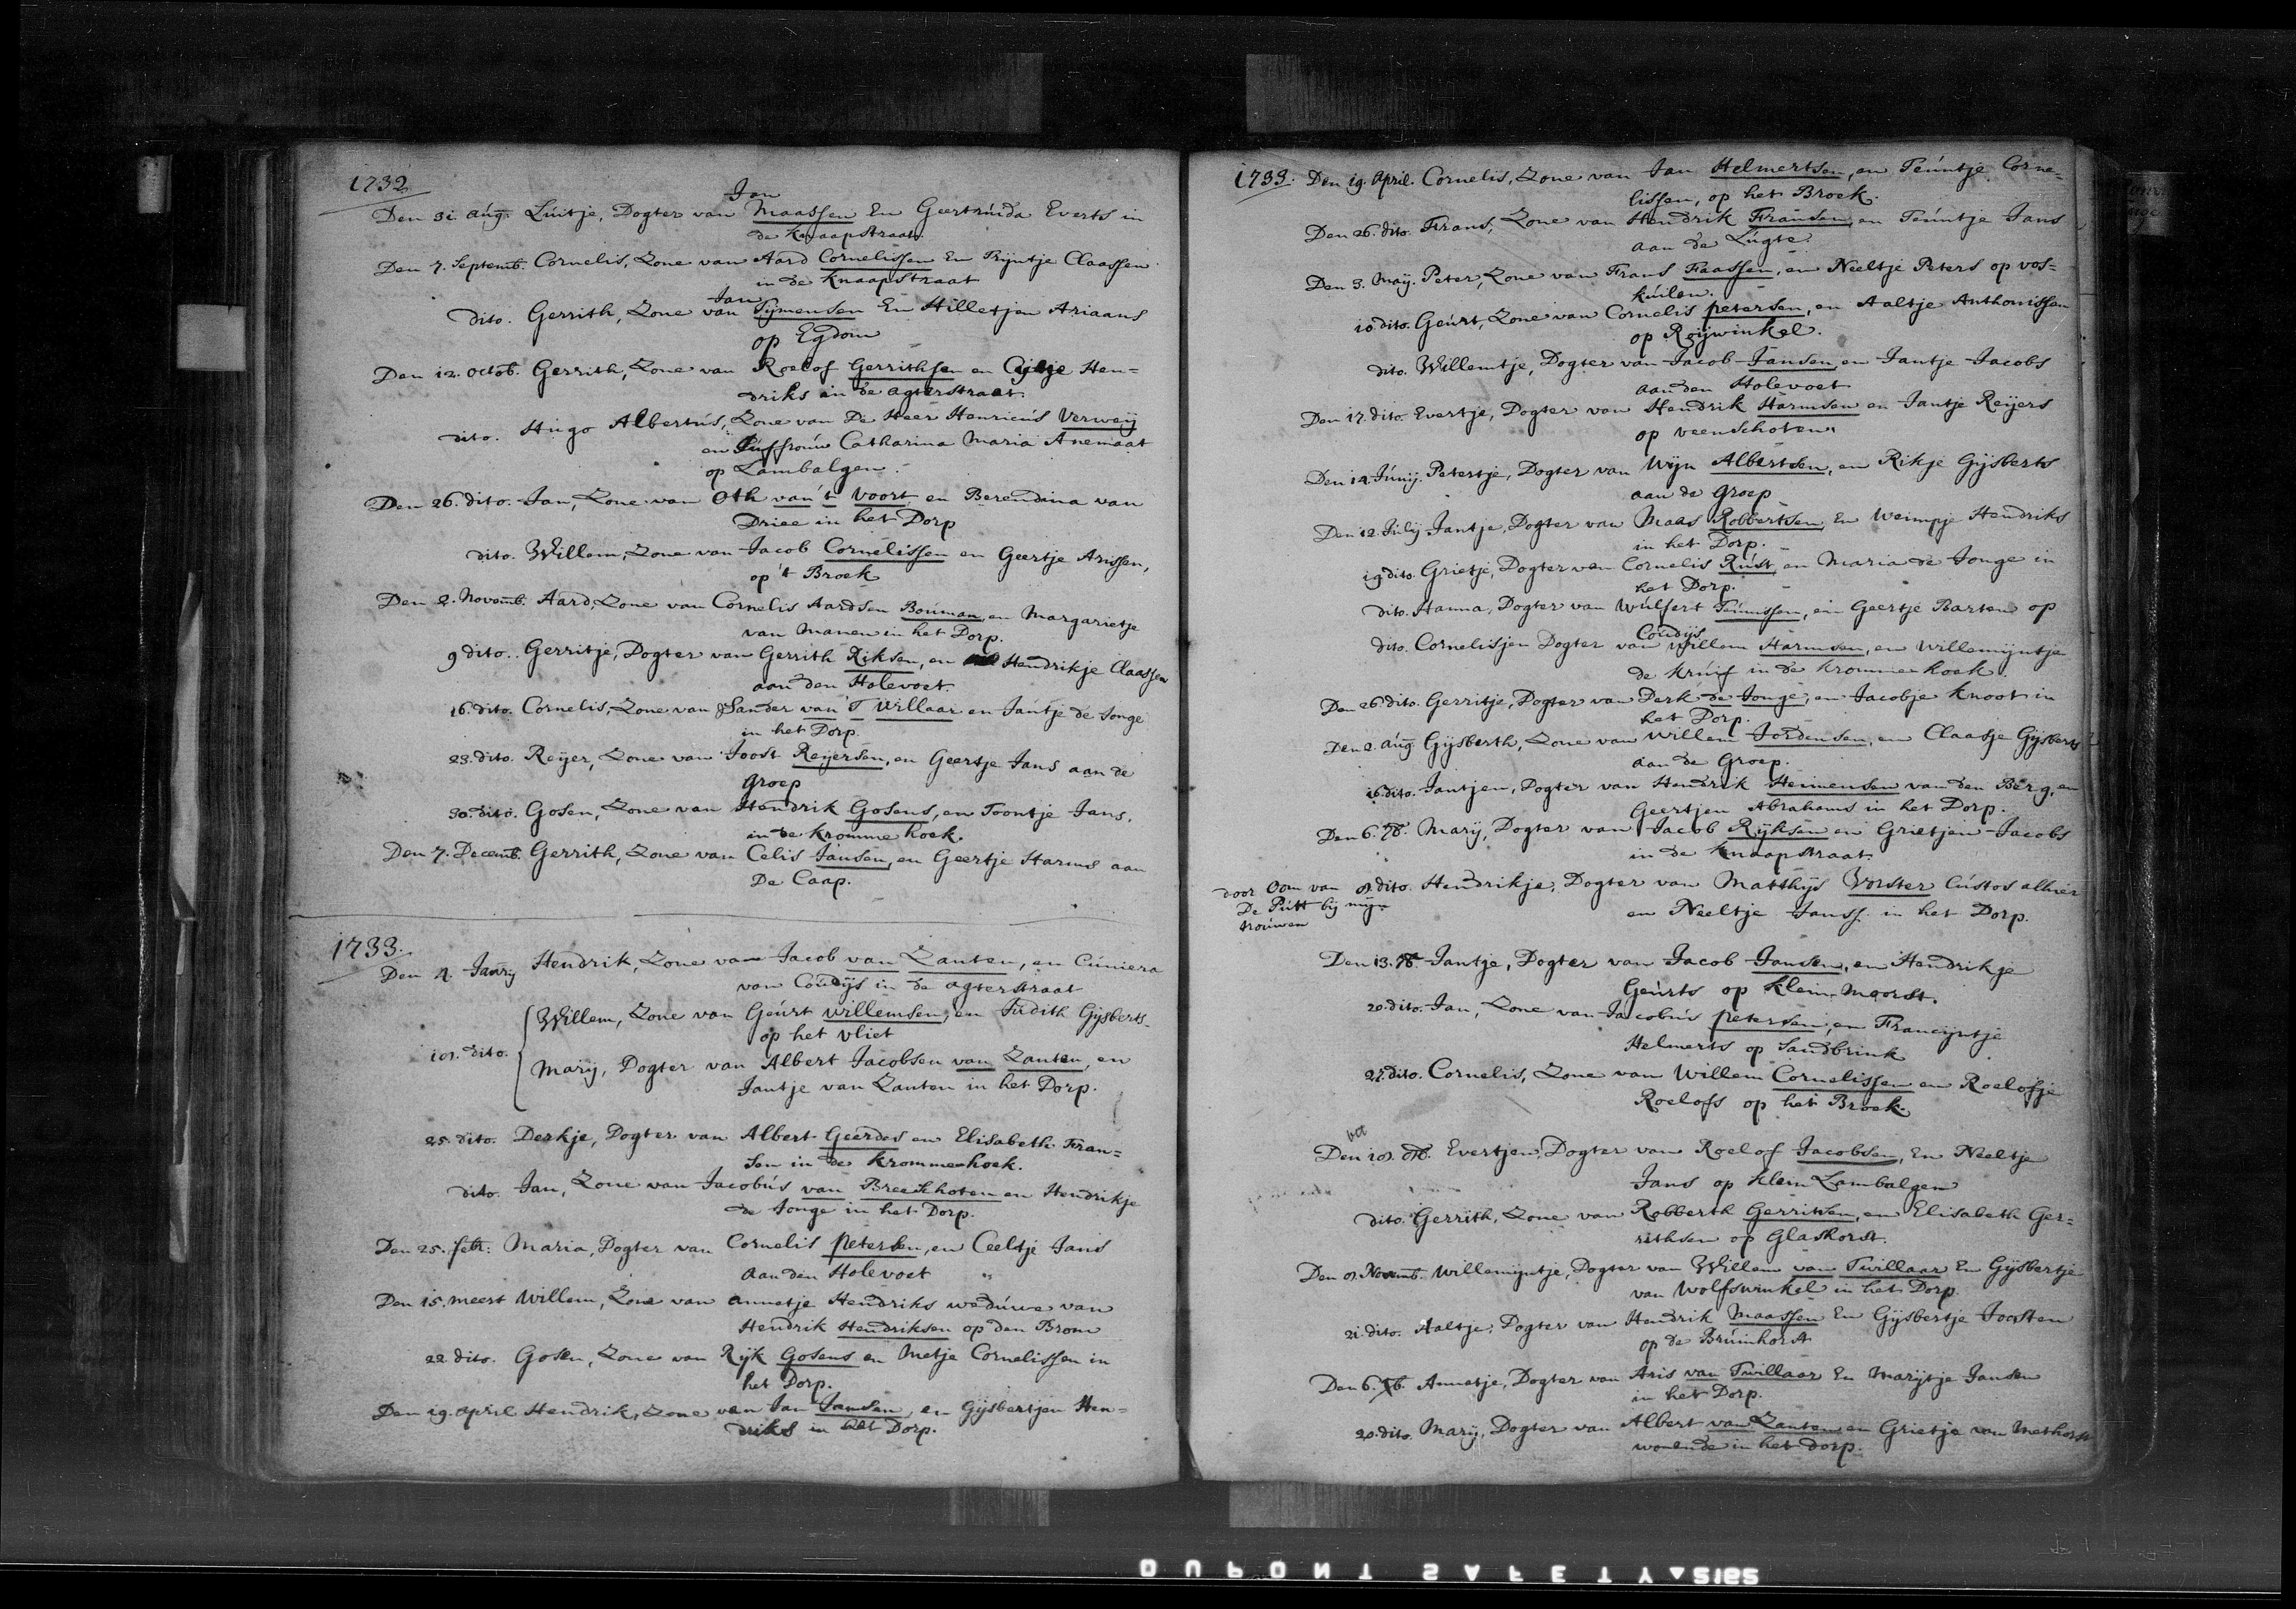 1732
Jan
Den 31. aúg. Lúitje, Dogter van Maassen En Geertrúida Everts in
de Knaapstraat.
Den 7. Septemb. Cornelis, Zone van Aard Cornelissen En Trijntje Claassen
in de Knaapstraat
Jan
dito. Gerrith, Zone van Tymensen En Hilletjen Ariaans
op Egdom
Den 12. Octob. Gerrith, Zone van Roelof Gerrithsen en Hen=
driks in de agterstraat.
dito. Hugo Albertús, Zone van De Heer Henricús Verweij
en Júffroúw Catharina Maria Anemaat
op Lambalgen.
Den 26. dito. Jan, Zone van Oth van't Voort en Berendina van
Driee in het Dorp
dito. Willem, Zone van Jacob Cornelissen en Geertje Arissen,
op 't Broek
Den 2. Novemb. Aard, Zone van Cornelis Aardsen Bouman en Margarietje
van Manen in het Dorp.
9 dito. Gerritje, Dogter van Gerrith Riksen, en Hendrikje Claassen
aan den Holevoet.
16. dito. Cornelis, Zone van Sander van T Willaar en Jantje de Jonge
in het Dorp.
23. dito. Reijer, Zone van Joost Reijersen, en Geertje Jans aan de
groep
30. dito. Gosen, Zone van Hendrik Gosens, en Toontje Jans,
in de kromme hoek.
Den 7. Decemb. Gerrith, Zone van Celis Jansen, en Geertje Harms aan
De Caap.
1733.
Den 4. Janrij Hendrik, Zone van Jacob van Zanten, en Cúniera
van Coúdijs in de agterstraat
Willem, Zone van Geúrt willemsen, en Júdith Gijsberts
op het vliet
dito.
Marij, Dogter van Albert Jacobsen van Zanten, en
Jantje van Zanten in het Dorp.
25. dito. Derkje, Dogter van Albert Geerdes en Elisabeth Fran=
sen in de krommenhoek.
dito. Jan, Zone van Jacobús van Breeschoten en Hendrikje
de Jonge in het Dorp.
Den 25. febr: Maria, Dogter van Cornelis petersen, en Ceeltje Jans
aan den Holevoet
Den 15. meert Willem, Zone van annetje Hendriks wedúwe van
Hendrik Hendriksen op den Brom
22. dito. Gosen, Zone van Rijk Gosens en Metje Cornelissen in
het Dorp.
Den 19. april Hendrik, Zone van Jan Jansen, en Gijsbertjen Hen=
driks in het Dorp.
1733. Den 19. April. Cornelis, Zone van Jan Helmertsen, en Teúntje Corne=
lissen, op het Broek.
Den 26. dito. Frans, Zone van Hendrik Fransen, en Teúntje Jans
aan de Lúgte.
Den 3. Maij. Peter, Zone van Frans Faassen, en Neeltje Peters op vos=
kúilen.
10 dito. Geúrt, Zone van Cornelis petersen, en Aaltje Anthonissen
op Roijwinkel.
dito. Willemtje, Dogter van Jacob Jansen en Jantje Jacobs
aan den Holevoet
Den 17. dito. Evertje, Dogter van Hendrik Harmsen en Jantje Reijers
op veenschoten
Den 14. Júnij. Petertje, Dogter van Wijn Albertsen, en Rikje Gijsberts
aan de groep
Den 12. Júlij Jantje, Dogter van Maas Robbertsen En Weimpje Hendriks
in het Dorp.
19 dito. Grietje, Dogter van Cornelis Rúst, en Maria de Jonge in
het Dorp.
dito. Hanna, Dogter van Wúlfert Teúnissen, en Geertje Barten op
Coúdijs
dito. Cornelisjen Dogter van willem Harmsen, en willemijntje
de Krúif in de krommen hoek.
Den 26 dito. Gerritje, Dogter van Derk de Jonge, en Jacobje Knoot in
het Dorp.
Den 2. aúg. Gijsberth, Zone van Willem Jordensen, en Claasje Gijsberts
aan de Groep.
16 dito. Jantjen, Dogter van Hendrik Heimensen van den Berg, en
Geertjen Abrahams in het Dorp.
Den 6. 7b. Marij, Dogter van Jacob Rijksen en Grietjen Jacobs
in de Knaapstraat.
door Oom van
De Pútt bij mijn
troúwen
dito. Hendrikje, Dogter van Matthijs Vorster Cústos alhier
en Neeltje Janss. in het Dorp.
Den 13. 7b. Jantje, Dogter van Jacob Jansen, en Hendrikje
Geúrts op Klein Moorst.
20. dito. Jan, Zone van Jacobús petersen, en Francijntje
Helmerts op Sandbrink
27. dito. Cornelis, Zone van Willem Cornelissen en Roelofje
Roelofs op het Broek.
Den Evertjen, Dogter van Roelof Jacobsen, En Neeltje
Jans op Klein Lambalgen
dito. Gerrith, Zone van Robberth Gerritsen, en Elisabeth Ger=
rithsen op Glashorst.
Den Novemb. Willemijntje, Dogter van Willem van Twillaar En Gijsbertje
van Wolfswinkel in het Dorp.
21. dito. Aaltje, Dogter van Hendrik Maassen En Gijsbertje Joosten
op de Brúinhorst
Den 6. Xb. Annetje, Dogter van Aris van Twillaar En Marijtje Jansen
in het Dorp.
20. dito. Marij, Dogter van Albert van Zanten en Grietje van Methorst
wonende in het dorp.
DUPONT SAFETY